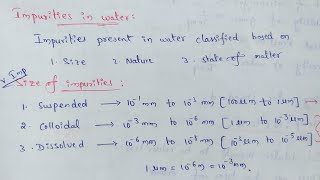 Impurities in water:
Impurities present in water classified based on
1. Size 2. Nature 3. state of matter
V. Imp
Size of impurities:
1. Suspended → 10⁻¹ mm to 10⁻³ mm [100 μm to 1 μm]
2. Colloidal → 10⁻³ mm to 10⁻⁶ mm [1 μm to 10⁻³ μm]
3. Dissolved → 10⁻⁶ mm to 10⁻⁸ mm [10⁻³ μm to 10⁻⁵ μm]
1 μm = 10⁻⁶ m = 10⁻³ mm.